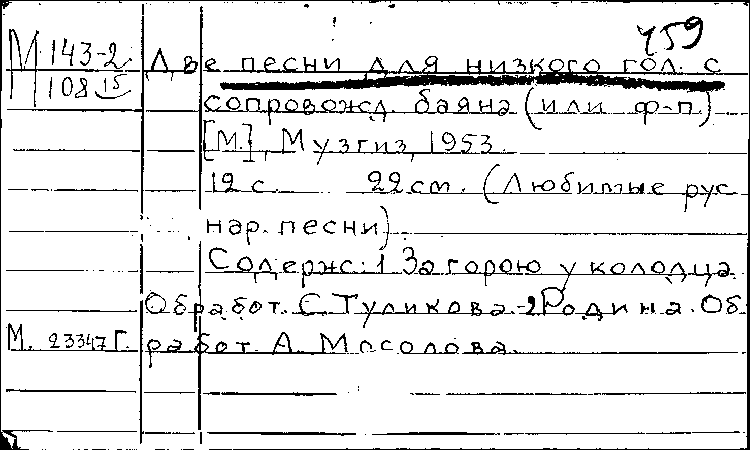 759
М 143-2 Две песни для низкого гол. с
108 15 сопровожд. баяна (или ф-п.)
[М.], Музгиз, 1953.
12 с. 22 см. (Любимые рус
нар. песни).
Содерж: 1 За горою у колодца.
Обработ. С. Туликова.-2 Родина. Об
М. 23347 Г. работ. А. Мосолова.